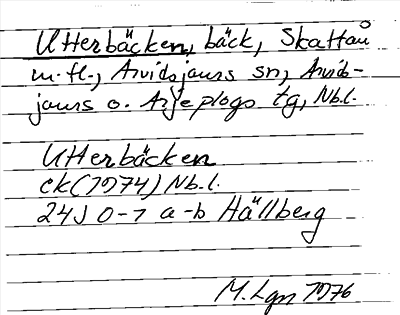 Utterbäcken, bäck, Skattaå
m.fl., Arvidsjaurs sn, Arvids-
jaurs o. Arjeplogs tg, Nb.l.
Utterbäcken
ek (1974) Nb.l.
24J 0-1 a-b Hällberg
M. Lgn 1976